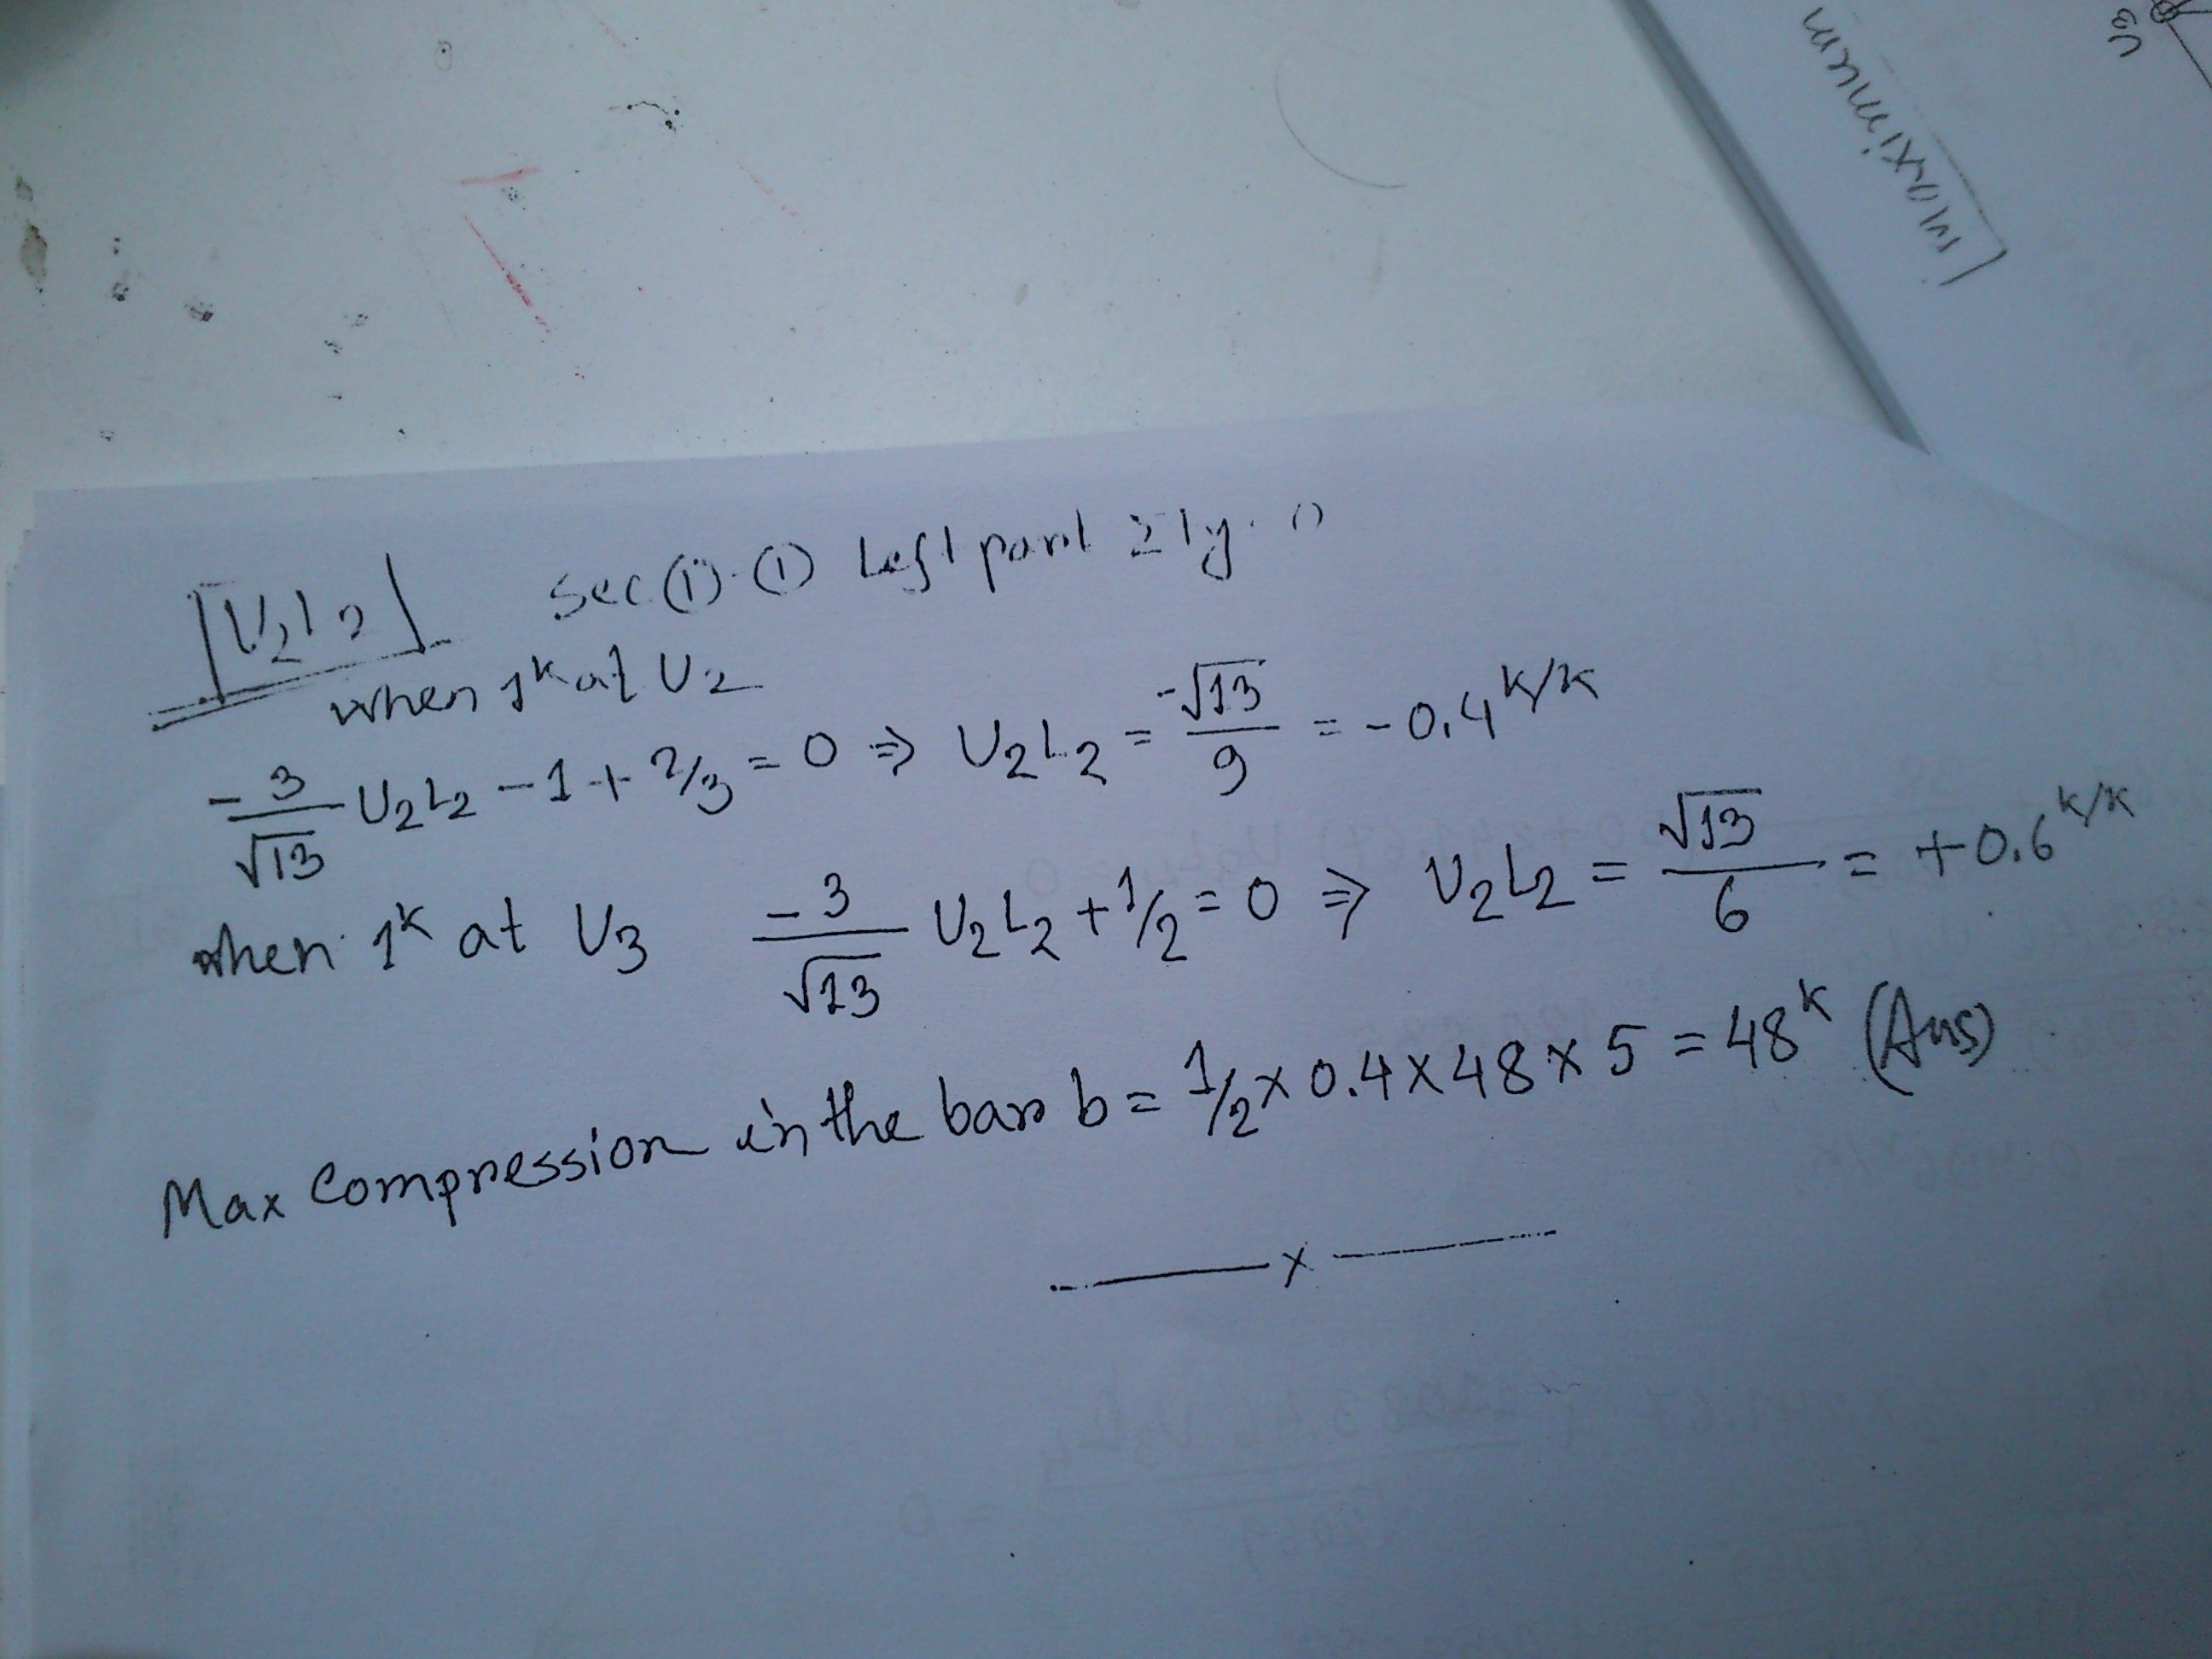 Maximum
U3
U2L2 Sec (1)-(1) Left part Σfy=0
when 1^k at U2
-3/√13 U2L2 - 1 + 2/3 = 0 ⇒ U2L2 = -√13/9 = -0.4^k/k
when 1^k at U3 -3/√13 U2L2 + 1/2 = 0 ⇒ U2L2 = √13/6 = +0.6^k/k
Max Compression in the bar b = 1/2 × 0.4 × 48 × 5 = 48^k (Ans)
x